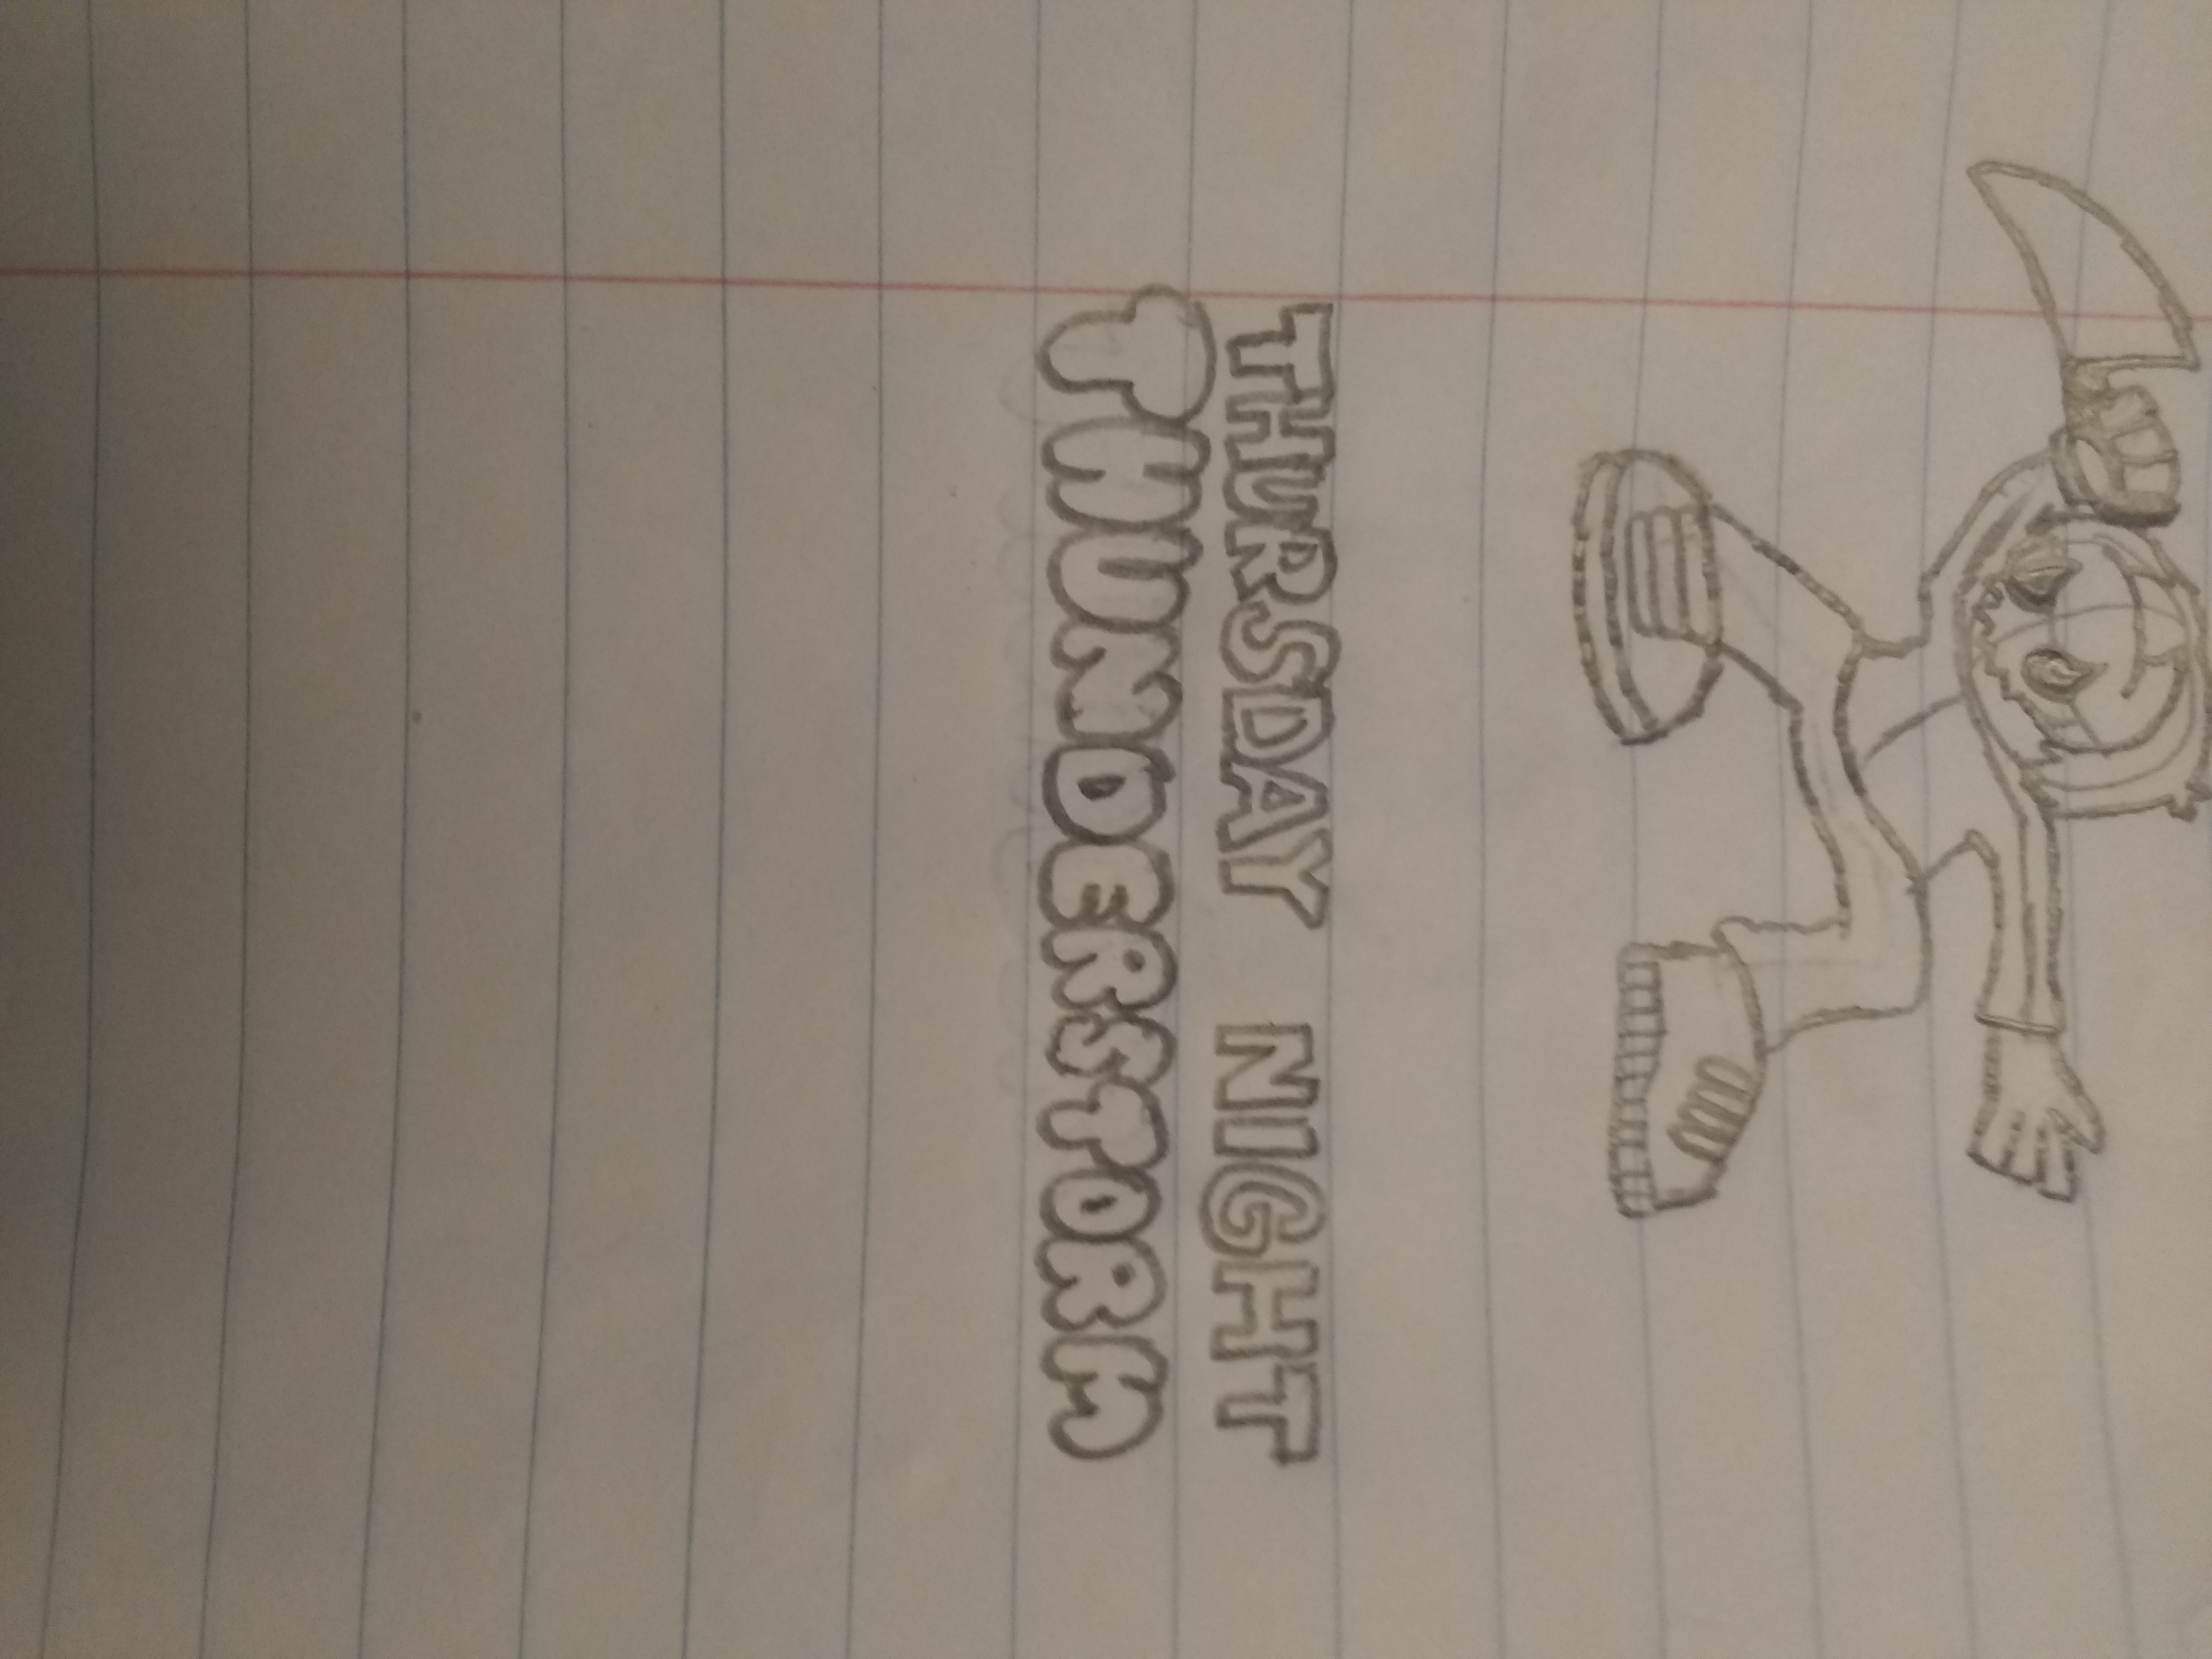 THURSDAY NIGHT
THUNDERSTORM